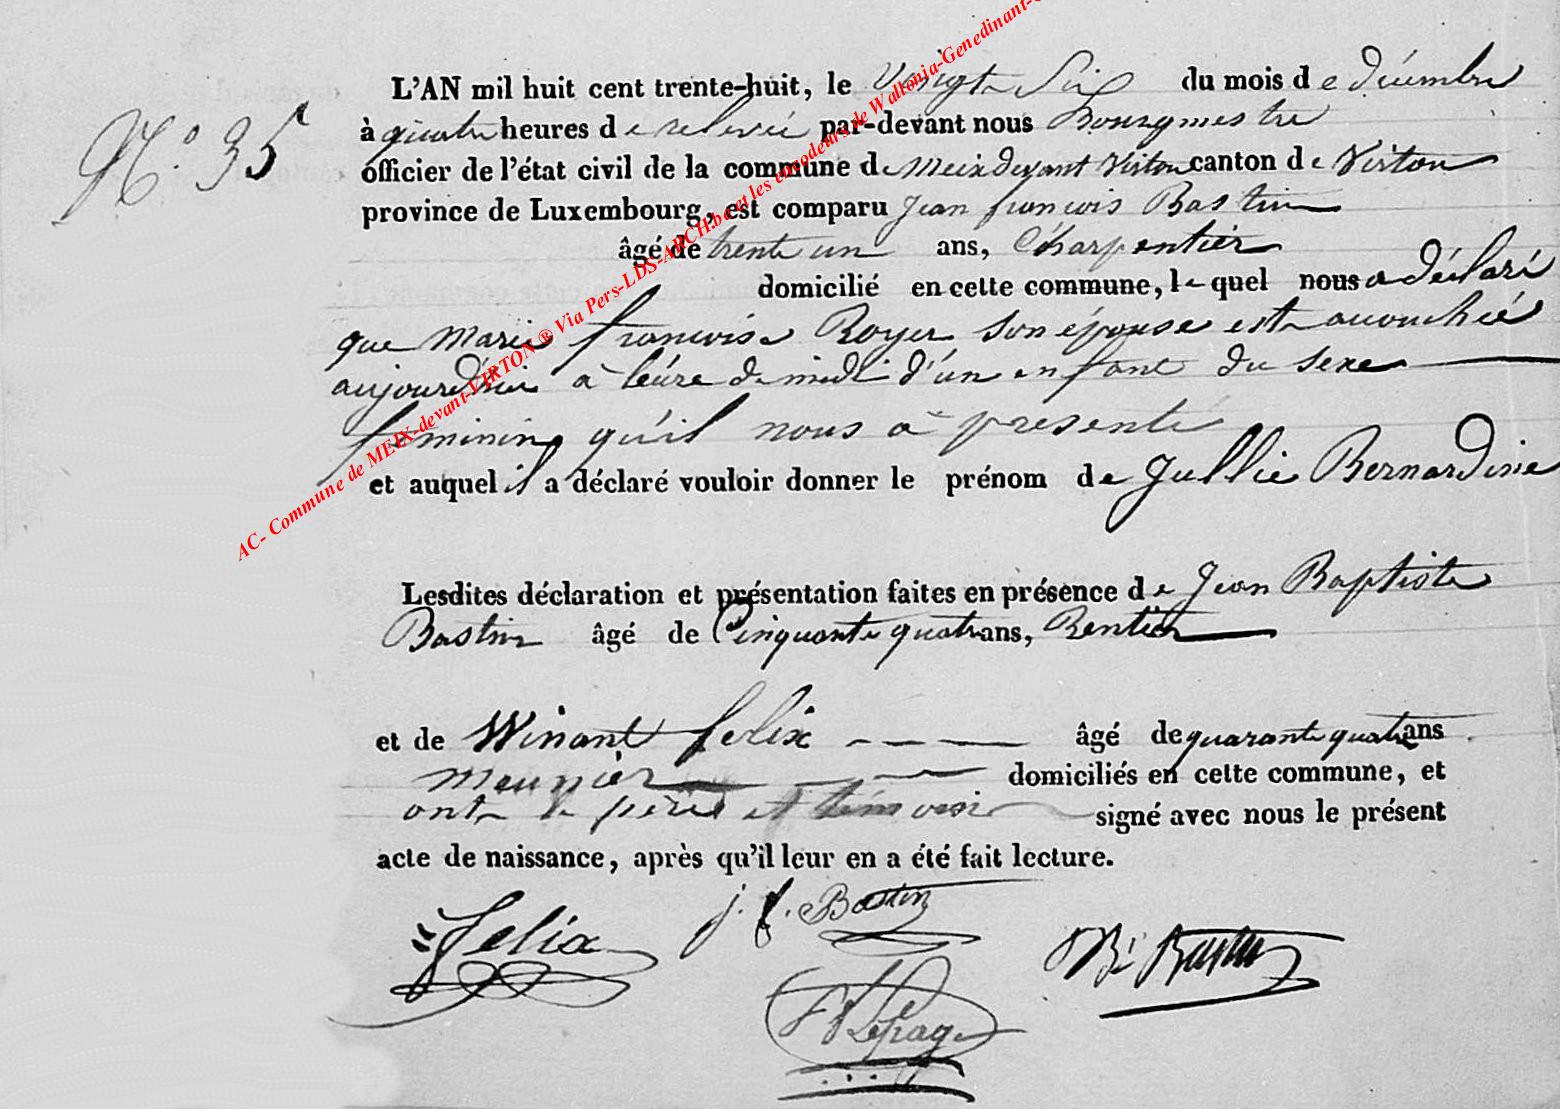 N.° 35
L'AN mil huit cent trente-huit, le Vingt Six du mois de décembre
à quatre heures de relevée par-devant nous Bourgmestre
officier de l'état civil de la commune de Meix devant Virton canton de Virton
province de Luxembourg, est comparu Jean françois Bastin
âgé de trente un ans, Charpentier
domicilié en cette commune, le quel nous a déclaré
que Marie françoise Royer Son épouse est accouchée
aujourd'hui à l'eure de midi d'un enfant du sexe
feminin qu'il nous à presenté
et auquel il a déclaré vouloir donner le prénom de Jullie Bernardine
Lesdites déclaration et présentation faites en présence de Jean Baptiste
Bastin âgé de Cinquante quatre ans, Rentier
et de Winant felix âgé de quarante quatre ans
meunier domiciliés en cette commune, et
ont le père et témoins signé avec nous le présent
acte de naissance, après qu'il leur en a été fait lecture.
felix j. f. Bastin Bastin
Lepage
AC- Commune de MEIX-devant-VIRTON ® Via Pers-LDS-ARCH.be et les encodeurs de Wallonia-Genedinant-